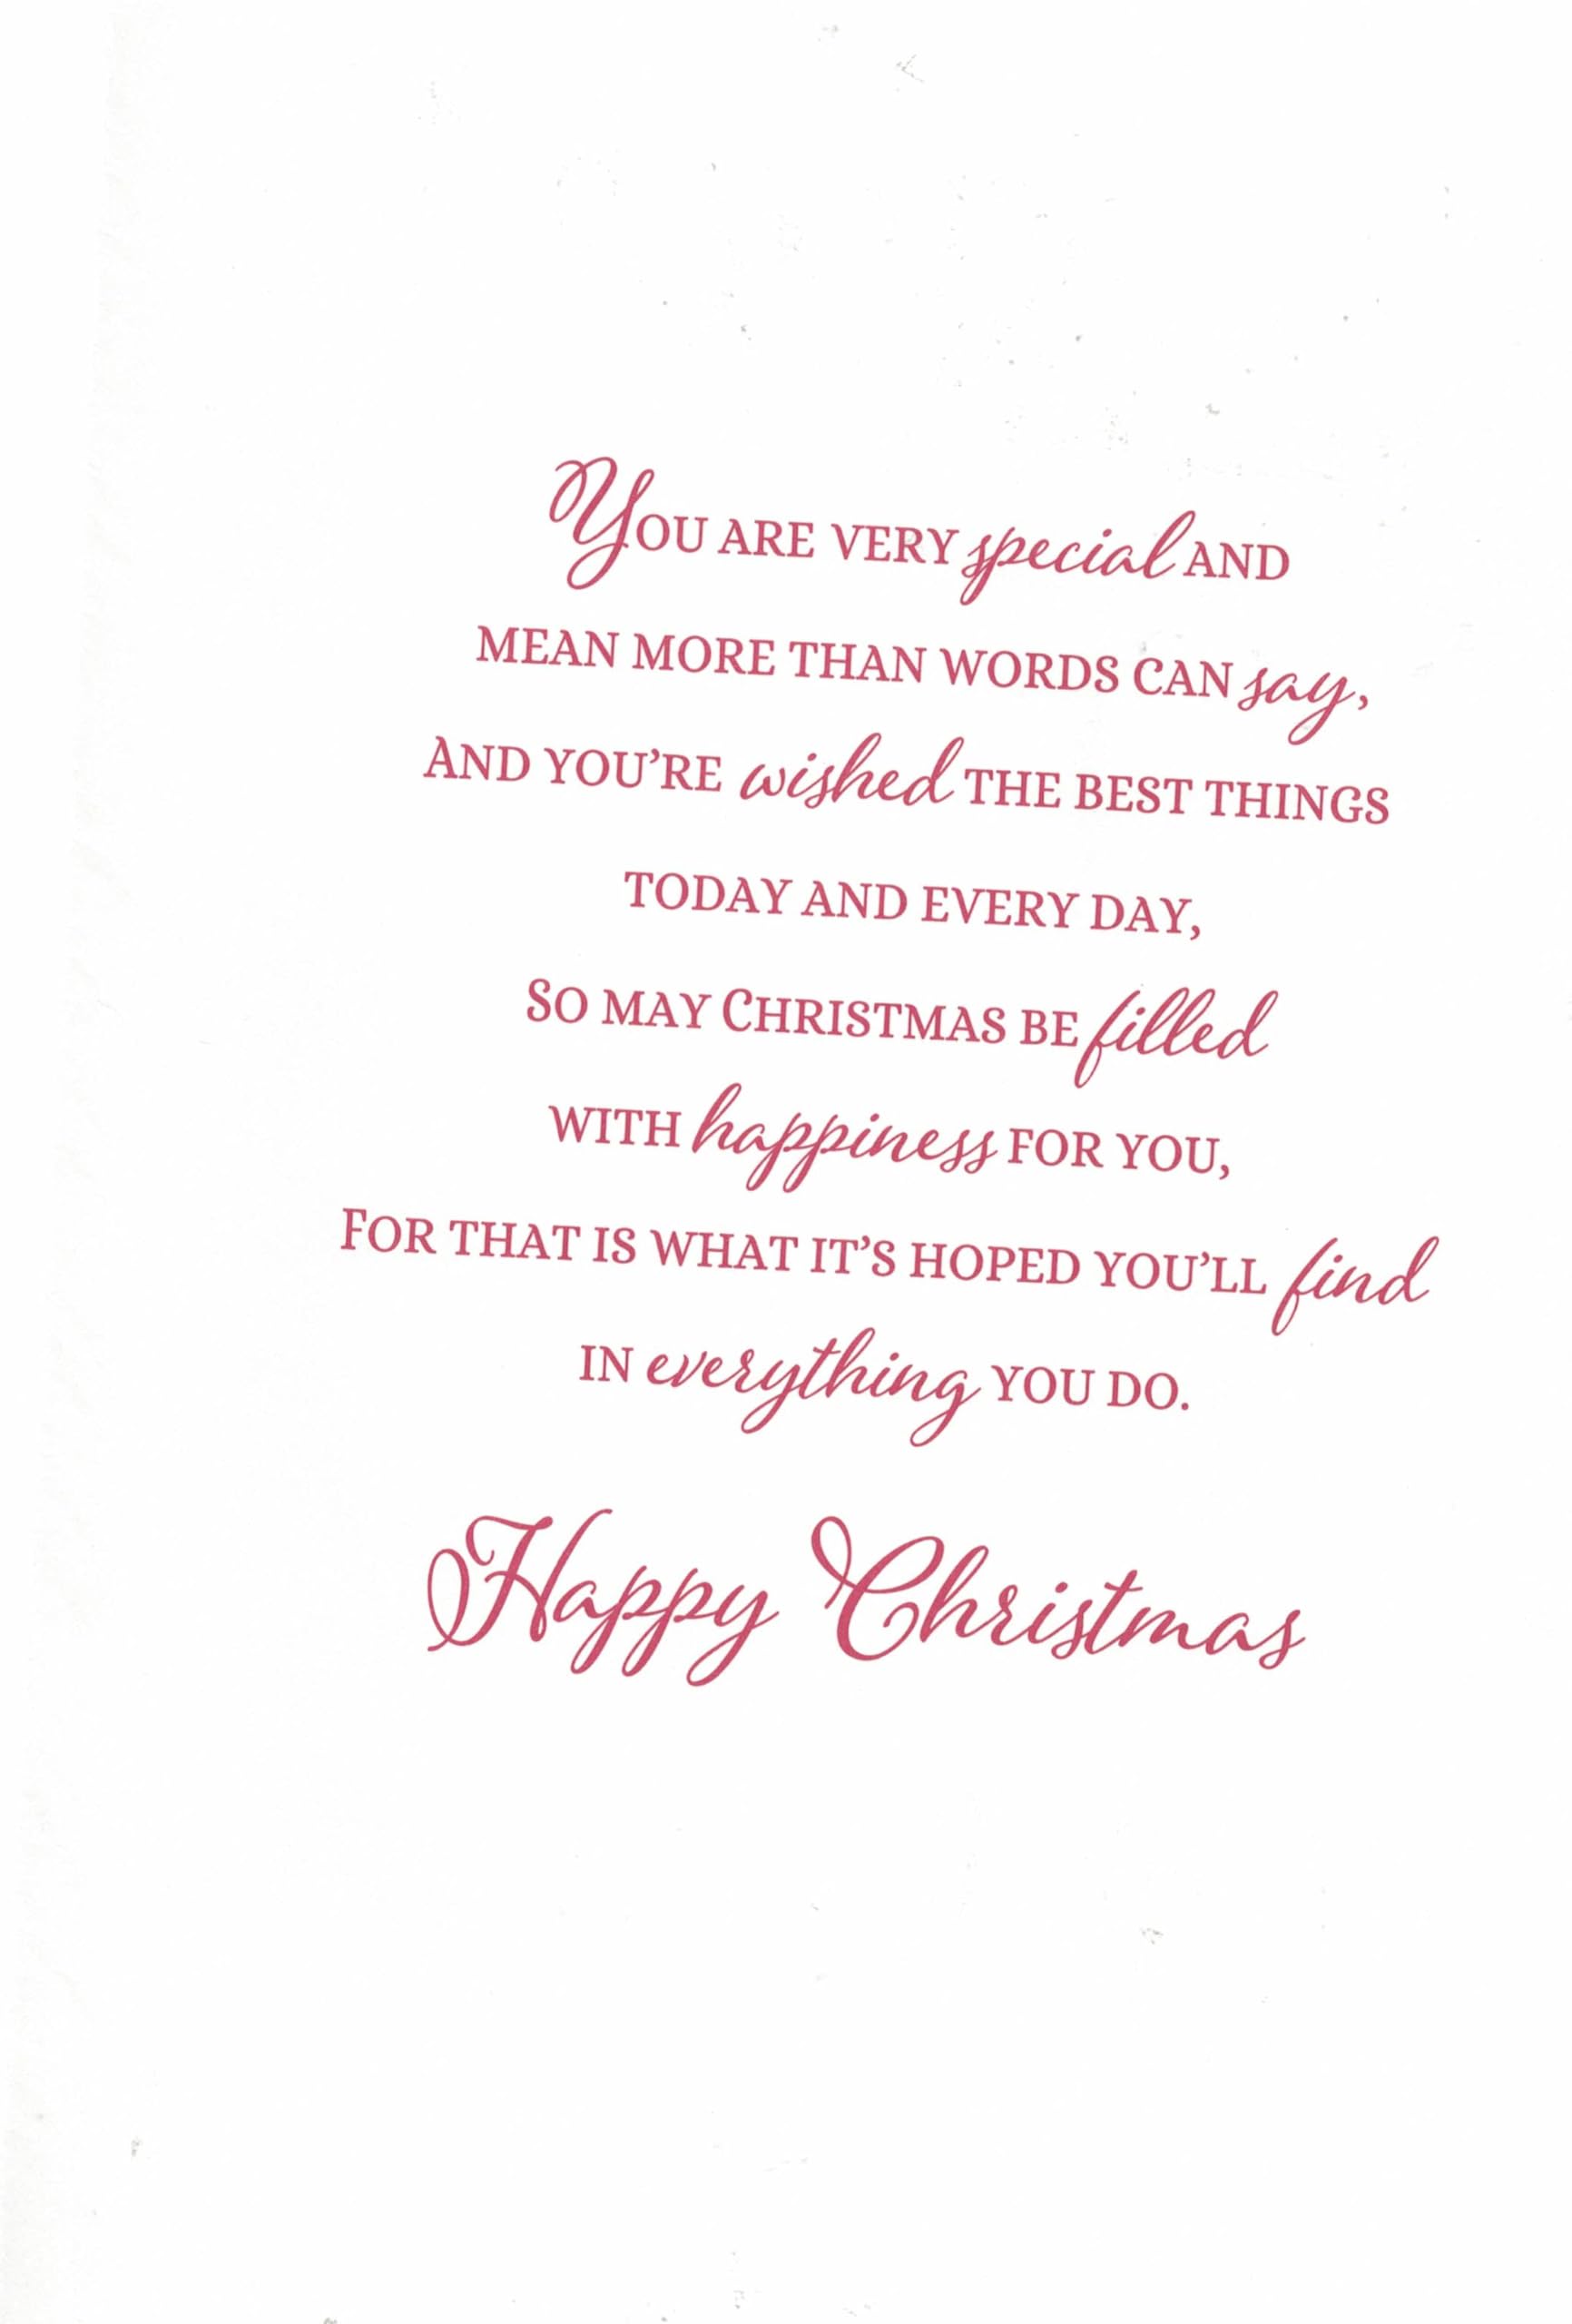 You are very special and
mean more than words can say,
And you're wished the best things
today and every day,
So may Christmas be filled
with happiness for you,
For that is what it's hoped you'll find
in everything you do.
Happy Christmas